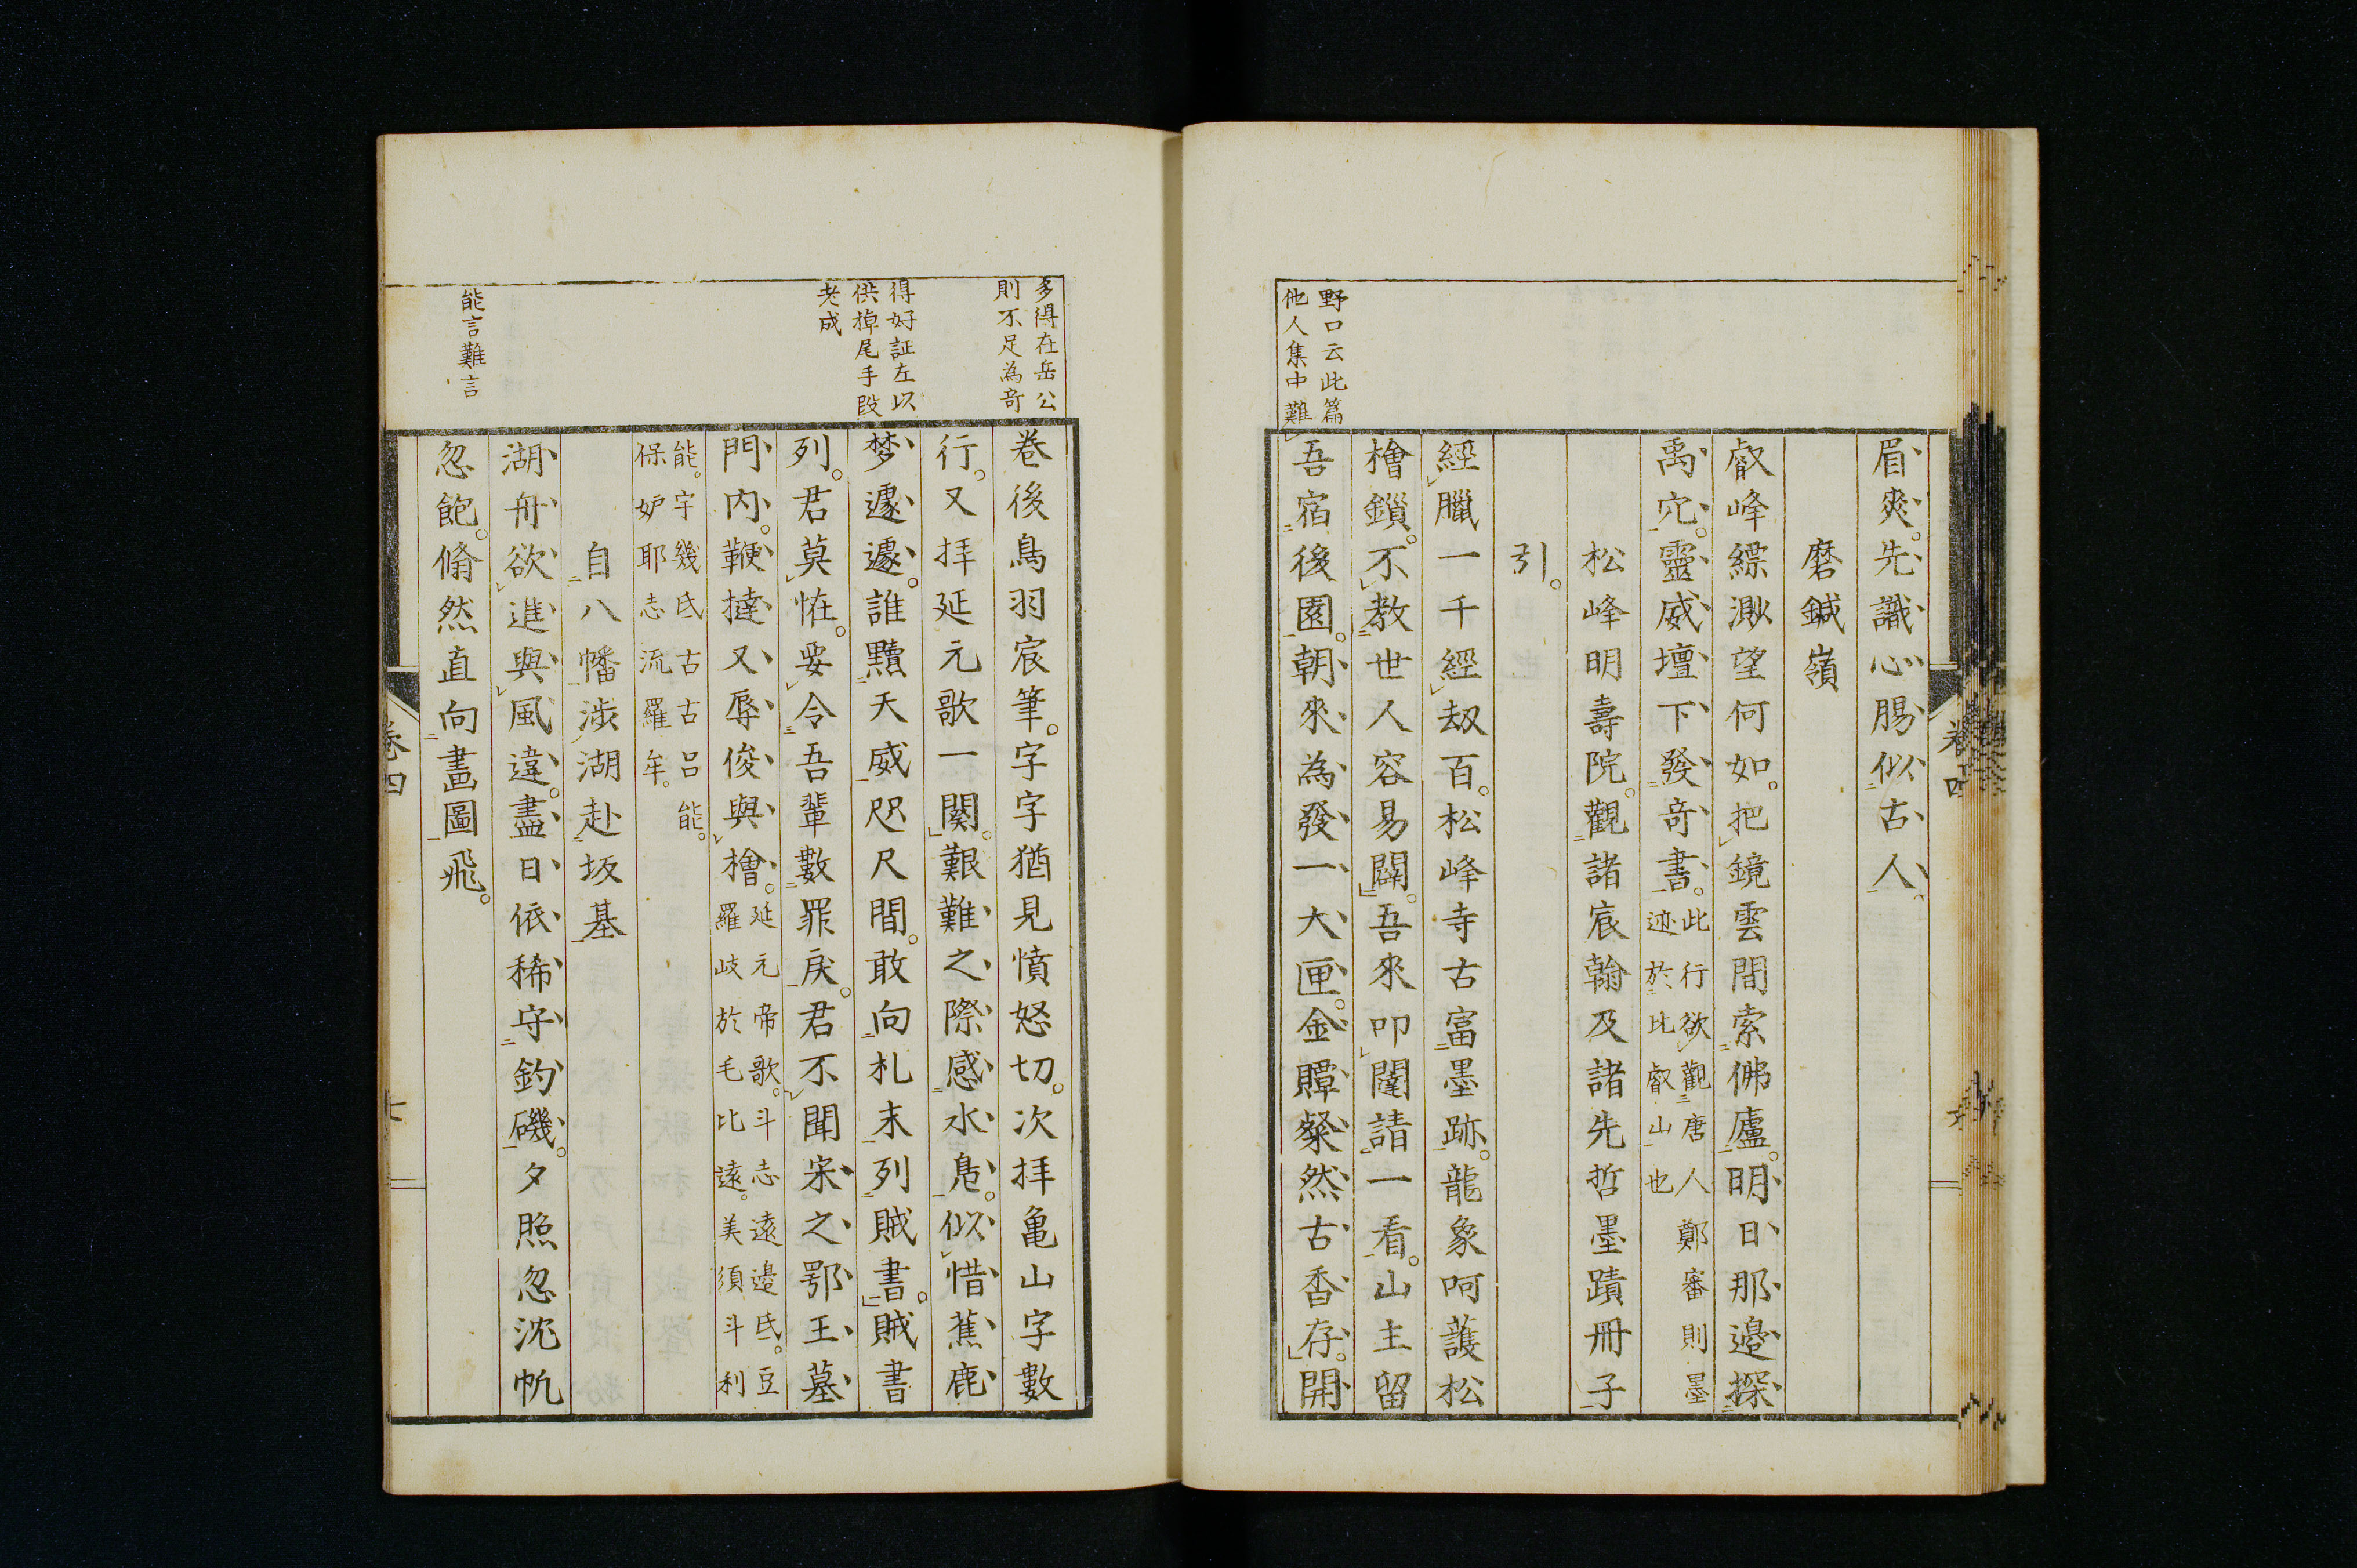 野口云此篇
他人集中難
眉爽。先識心腸似古人。
磨鍼嶺
叡峰縹渺望何如。把鏡雲間索佛廬。明日那邊探
禹穴。靈威壇下發奇書。此行欲觀唐人鄭審則墨
迹於比叡山也
松峰明壽院。觀諸宸翰及諸先哲墨蹟冊子
引。
經臘一千經劫百。松峰寺古富墨跡。龍象呵護松
檜鎖。不教世人容易闢。吾來叩關請一看。山主留
吾宿後園。朝來為發一大匣。金贉粲然古香存。開
多得在岳公
則不足為奇
得好証左以
供掉尾手段
老成
能言難言
卷後鳥羽宸筆。字字猶見憤怒切。次拝亀山字數
行。又拝延元歌一闋。艱難之際感水鳬。似惜蕉鹿
梦遽遽。誰黷天威咫尺間。敢向札末列賊書。賊書
列。君莫恠。要令吾輩數罪戻。君不聞宋之鄂王墓
門内。鞭撻又辱俊與檜。延元帝歌。斗志遠邉氐。豆
羅岐於毛比遠。美須斗利
能。宇幾氐古古呂能。
保妒耶志流羅牟。
自八幡渉湖赴坂基
湖舟欲進與風違。盡日依稀守釣磯。夕照忽沈帆
忽飽。翛然直向畫圖飛。
卷四